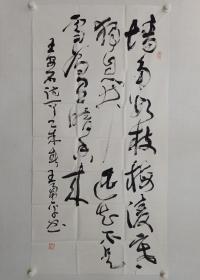 墙角数枝梅凌寒
独自开遥知不是
雪为有暗香来
王安石诗丁未春王